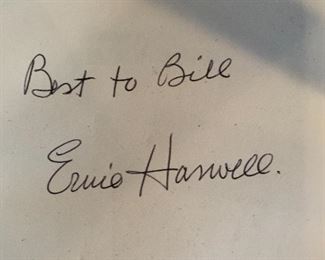 Best to Bill
Ernie Harwell.